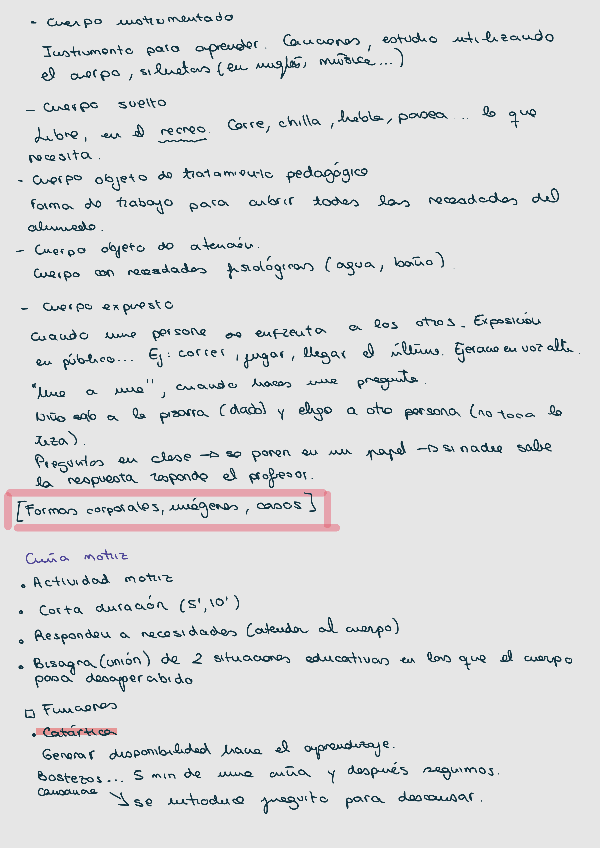 - Cuerpo instrumentado
Instrumento para aprender. Canciones, estudio utilizando
el cuerpo, siluetas (en inglés, música...)
- Cuerpo suelto
Libre, en el recreo. Corre, chilla, habla, pasea... lo que
necesita.
- Cuerpo objeto de tratamiento pedagógico
Forma de trabajo para cubrir todas las necesidades del
alumnado.
- Cuerpo objeto de atención.
Cuerpo con necesidades fisiológicas (agua, baño)
- Cuerpo expuesto
Cuando una persona se enfrenta a los otros. Exposición
en público... Ej: correr, jugar, llegar el último. en voz alta.
"Una a una", cuando haces una pregunta.
Niño sale a la pizarra (dado) y eligo a otra persona (no toca la
tiza).
Preguntas en clase → se ponen en un papel → si nadie sabe
la respuesta responde el profesor.
[Formas corporales, imágenes, casos]
Cuña motriz
• Actividad motriz
• Corta duración (5', 10')
• Responden a necesidades (atender al cuerpo)
• Bisagra (unión) de 2 situaciones educativas en las que el cuerpo
pasa desapercibido
□ Funciones
• Catártica
Generar disponibilidad hacia el aprendizaje.
Bostezos... 5 min de una cuña y después seguimos.
cansancio ↘ se introduce jueguito para descansar.